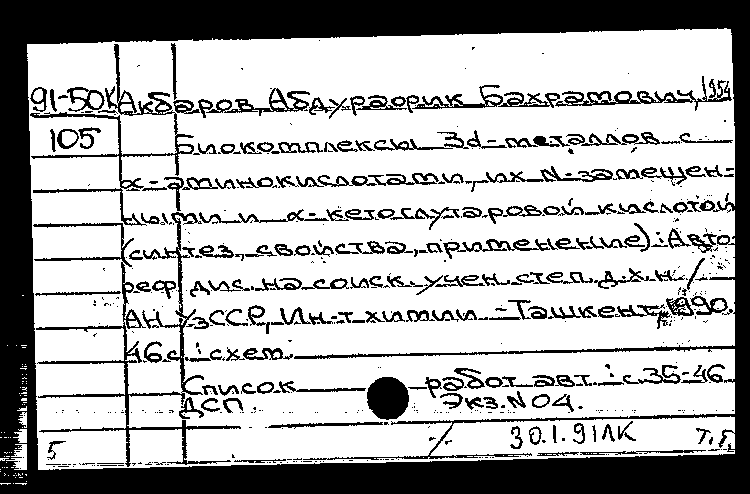 91-50К Акбаров, Абдурафик Бахрамович, 1954
105 Биокомплексы 3d-металлов с
α-аминокислотами, их N-замещен-
ными и α-кетоглутаровой кислотой
(синтез, свойства, применение): Авто-
реф. дис. на соиск. учен. степ. д.х.н. /
АН УзССР, Ин-т химии. - Ташкент, 1990.
46 с.: схем.
Список работ авт.: с. 35-46
ДСП. Экз. N 04.
5 -/- 30.1.91ЛК Т.Б.